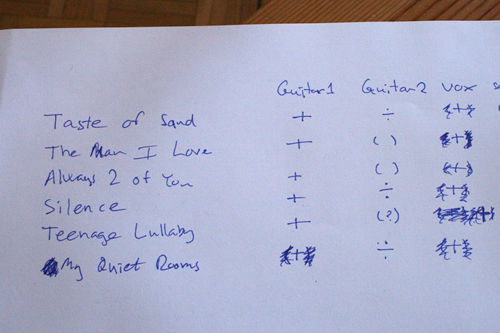 Guitar1 Guitar2 VOX
Taste of Sand + ÷ (+)
The Man I Love + ( ) (+)
Always 2 of You + ( ) (+)
Silence + ÷ (+)
Teenage Lullaby + (?) (+)
My Quiet Rooms (+) ÷ (+)